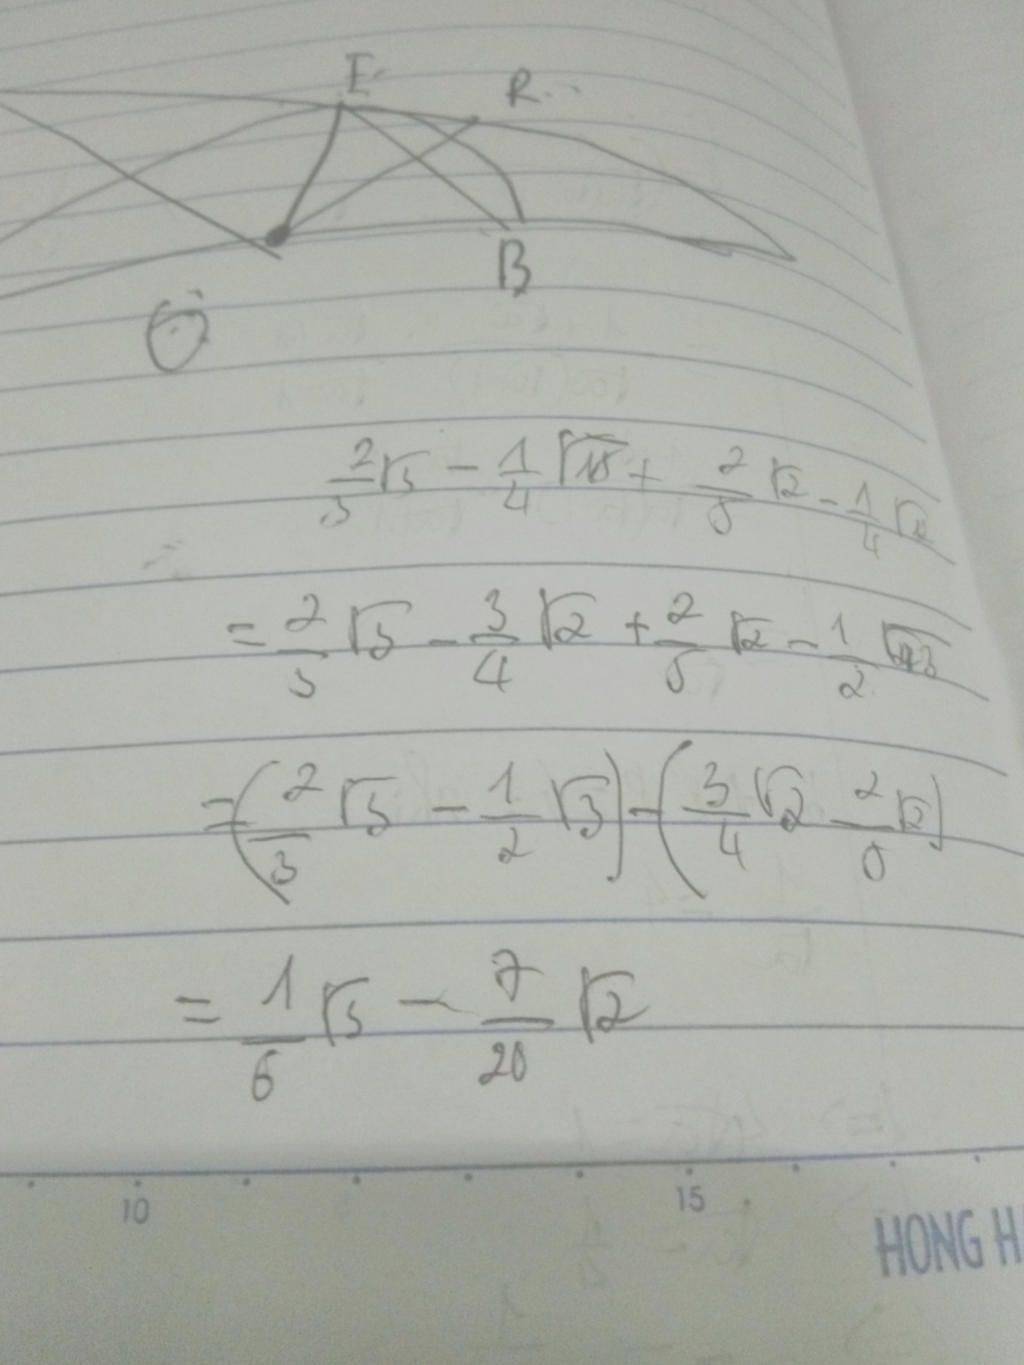 E R
B
O
2/3 √3 - 1/4 √18 + 2/5 √2 - 1/4 √12
= 2/3 √3 - 3/4 √2 + 2/5 √2 - 1/2 √3
= (2/3 √3 - 1/2 √3) - (3/4 √2 - 2/5 √2)
= 1/6 √3 - 7/20 √2
10 15
HONG H